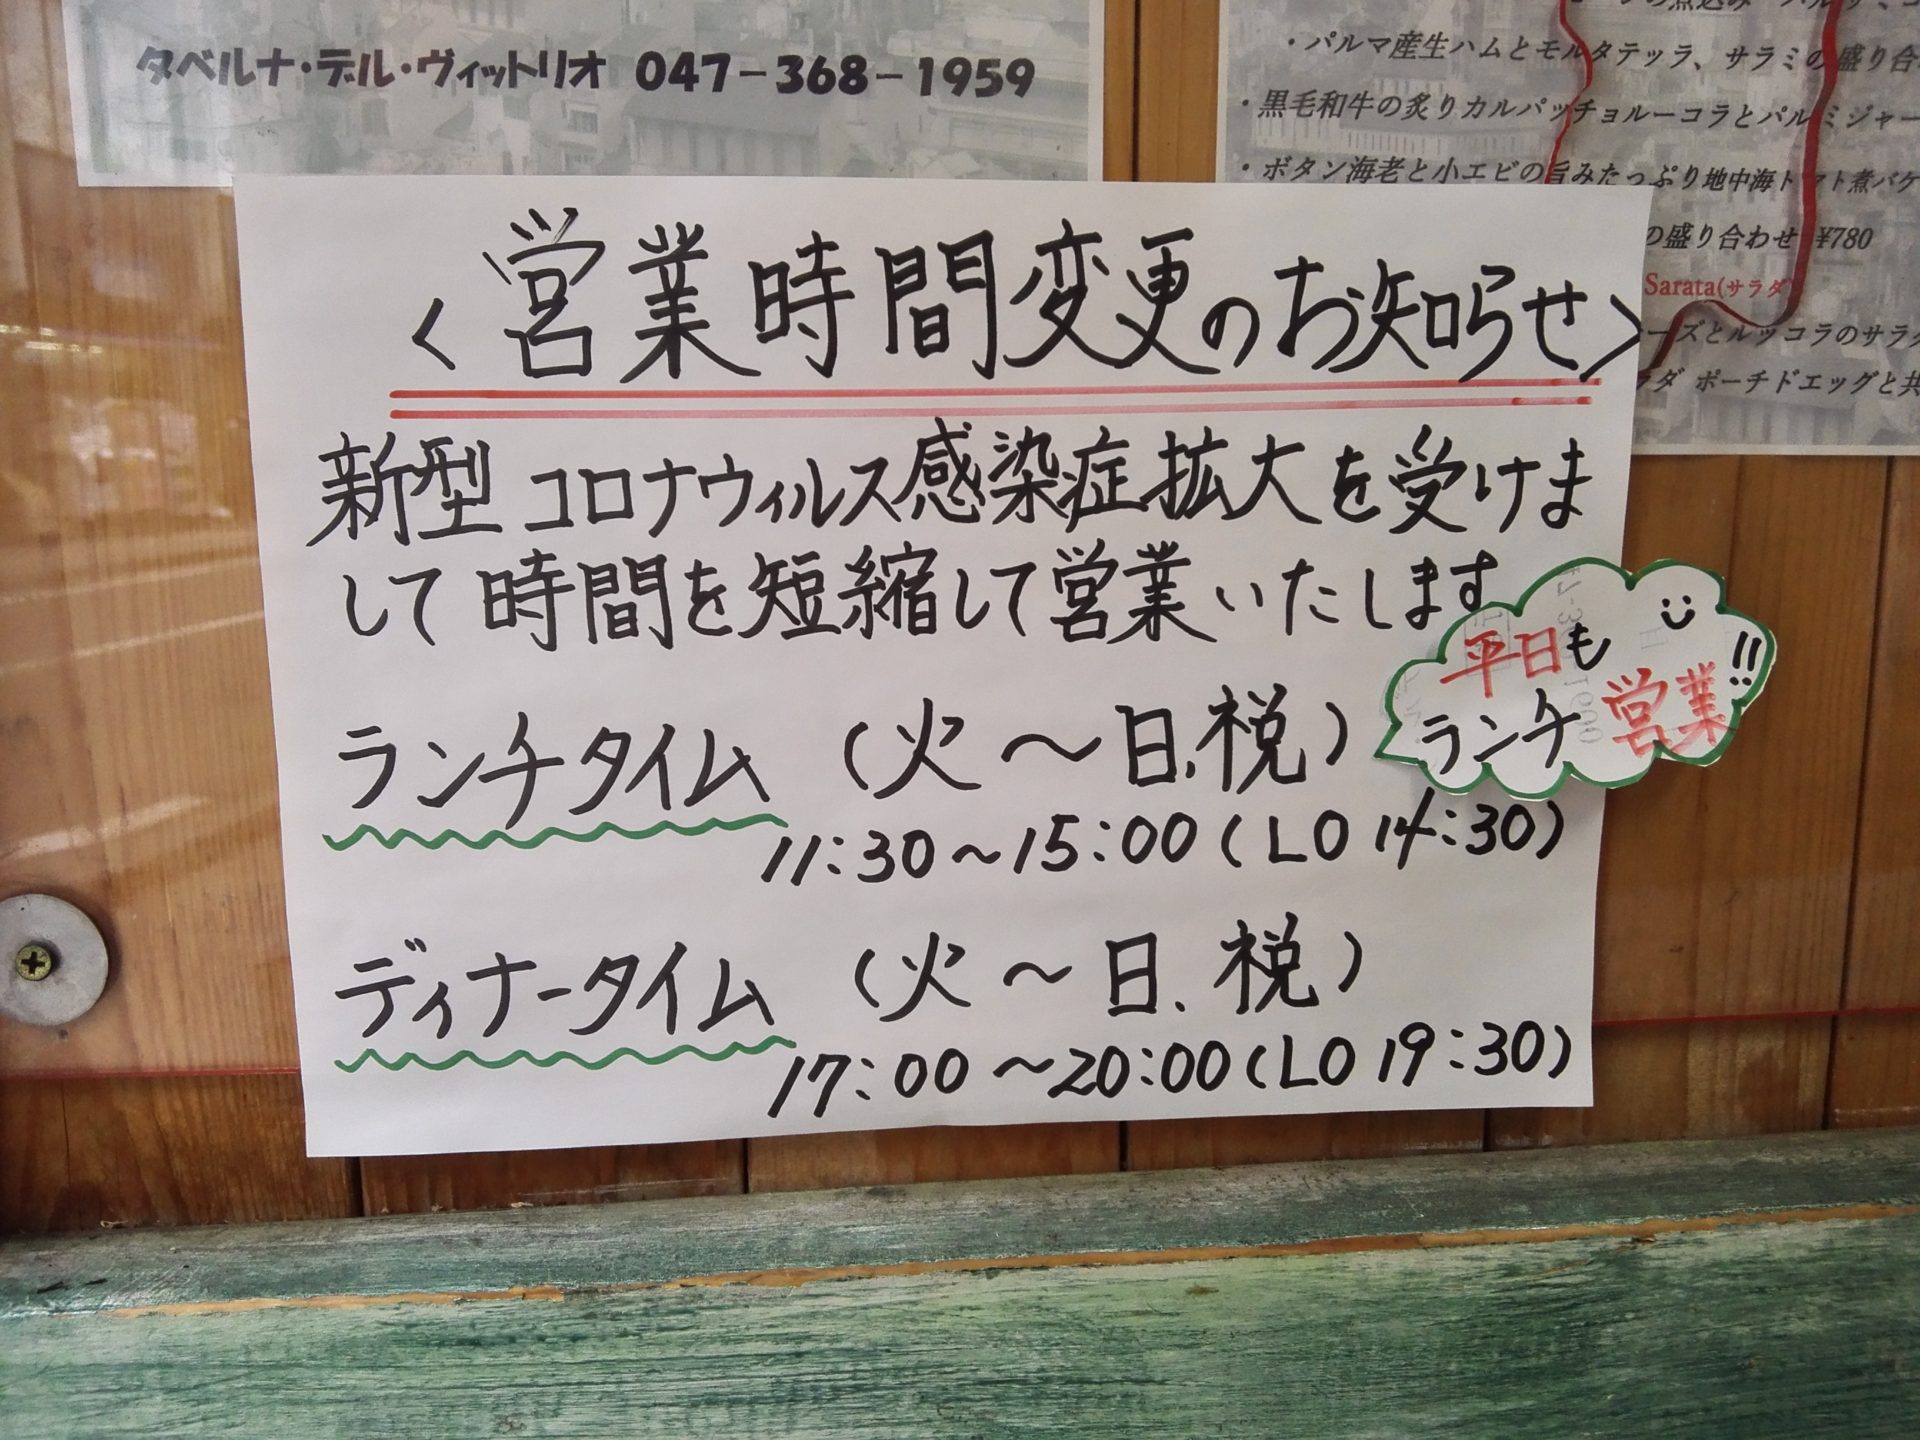 タベルナ・デル・ヴィットリオ 047-368-1959
・パルマ産生ハムとモルタデッラ、サラミの盛り合
・黒毛和牛の炙りカルパッチョルーコラとパルミジャー
・ボタン海老と小エビの旨みたっぷり地中海トマト煮バケ
の盛り合わせ ¥780
Sarata(サラダ)
ーズとルッコラのサラダ
ラダ ポーチドエッグと共
<営業時間変更のお知らせ>
新型コロナウィルス感染症拡大を受けま
して時間を短縮して営業いたします
平日も
ランチ営業!!
ランチタイム (火〜日、税)
11:30〜15:00(LO 14:30)
ディナータイム (火〜日、税)
17:00〜20:00(LO 19:30)